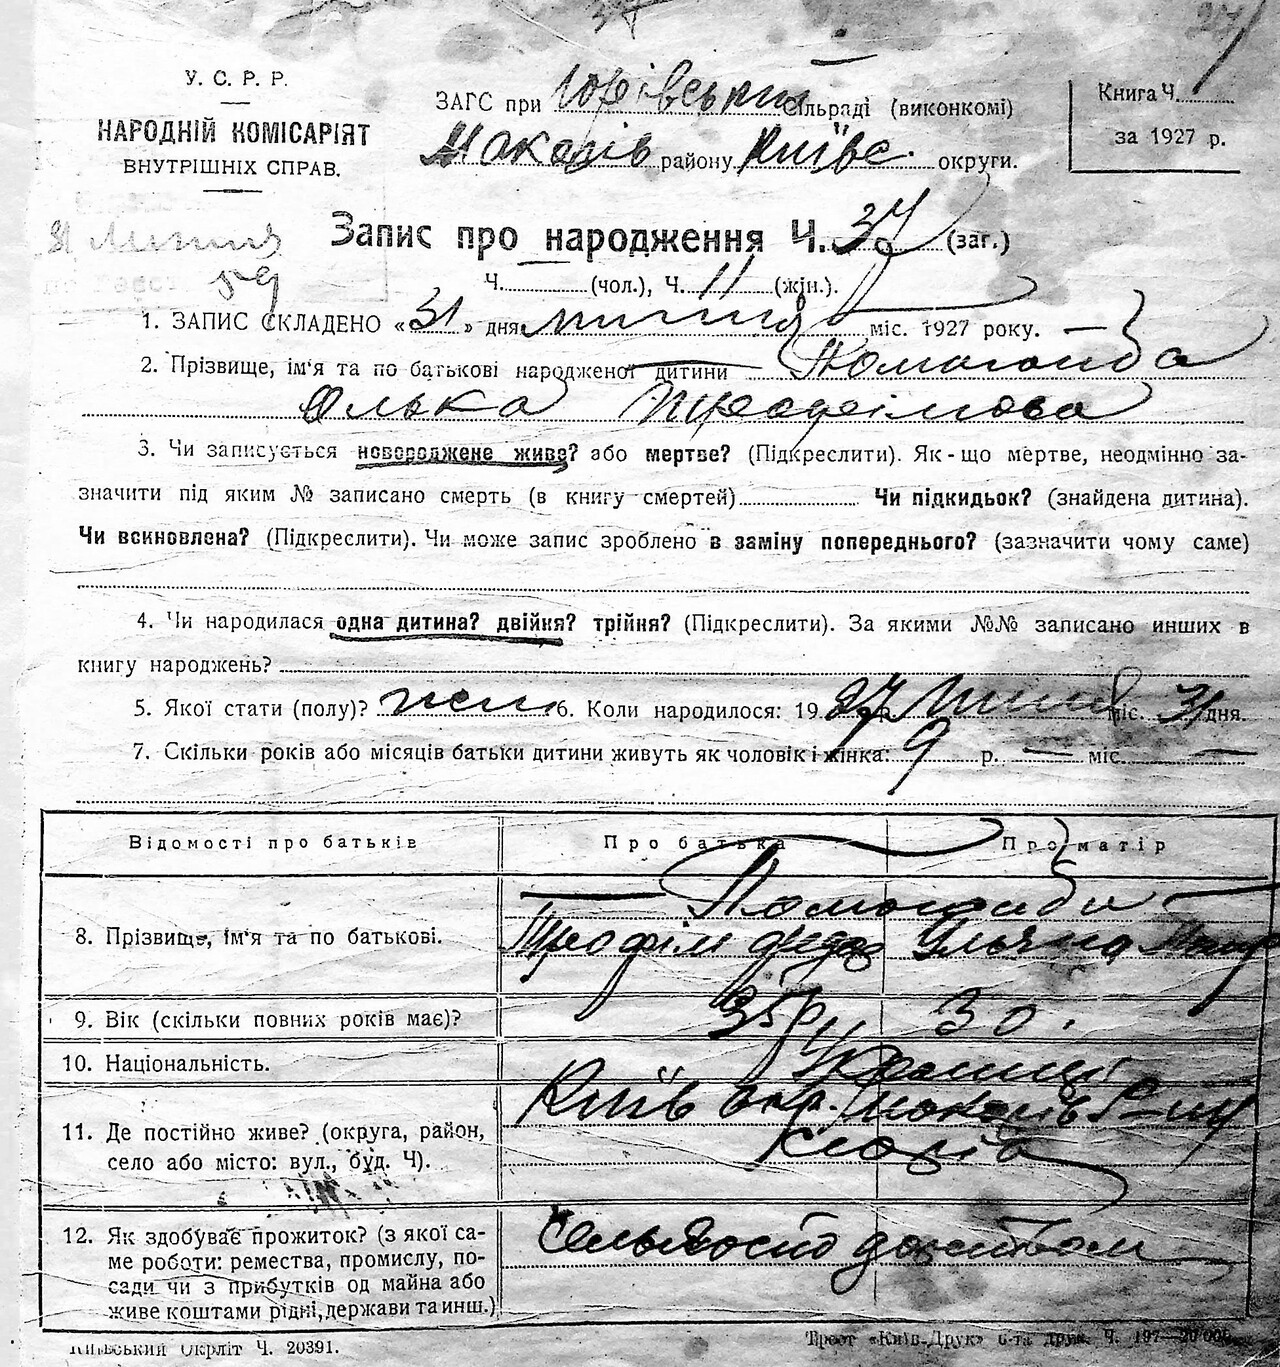 27
У. С. Р. Р.
НАРОДНІЙ КОМІСАРІЯТ
ВНУТРІШНІХ СПРАВ.
ЗАГС при Юрівській сільраді (виконкомі)
Макарів району Київс. округи.
Книга Ч.
за 1927 р.
31 Липня
59
Запис про народження Ч. 37 (заг.)
Ч. (чол.), Ч. 11 (жін.).
1. ЗАПИС СКЛАДЕНО «31» дня липня міс. 1927 року.
2. Прізвище, ім'я та по батькові народженої дитини
Олька Трофімова
3. Чи записується новороджене живе? або мертве? (Підкреслити). Як-що мертве, неодмінно за-
значити під яким № записано смерть (в книгу смертей) Чи підкидьок? (знайдена дитина).
Чи всиновлена? (Підкреслити). Чи може запис зроблено в заміну попереднього? (зазначити чому саме)
4. Чи народилася одна дитина? двійня? трійня? (Підкреслити). За якими №№ записано инших в
книгу народжень?
5. Якої стати (полу)? жен 6. Коли народилося: 1927 р. Липня міс. 31 дня.
7. Скільки років або місяців батьки дитини живуть як чоловік і жінка: 9 р. — міс. —
Відомості про батьків Про батька Про матір
8. Прізвище, ім'я та по батькові.
Трофім Ульяна
9. Вік (скільки повних років має)? 35 р. 30.
10. Національність. Украинці
11. Де постійно живе? (округа, район, Київ окр. Макарів Р-ну
село або місто: вул., буд. Ч).
12. Як здобуває прожиток? (з якої са-
ме роботи: ремества, промислу, по-
сади чи з прибутків од майна або
живе коштами рідні, держави та инш.)
Київський Окрліт Ч. 20391.
Трест «Київ-Друк» 6-та друк. Ч. 197—20.000.